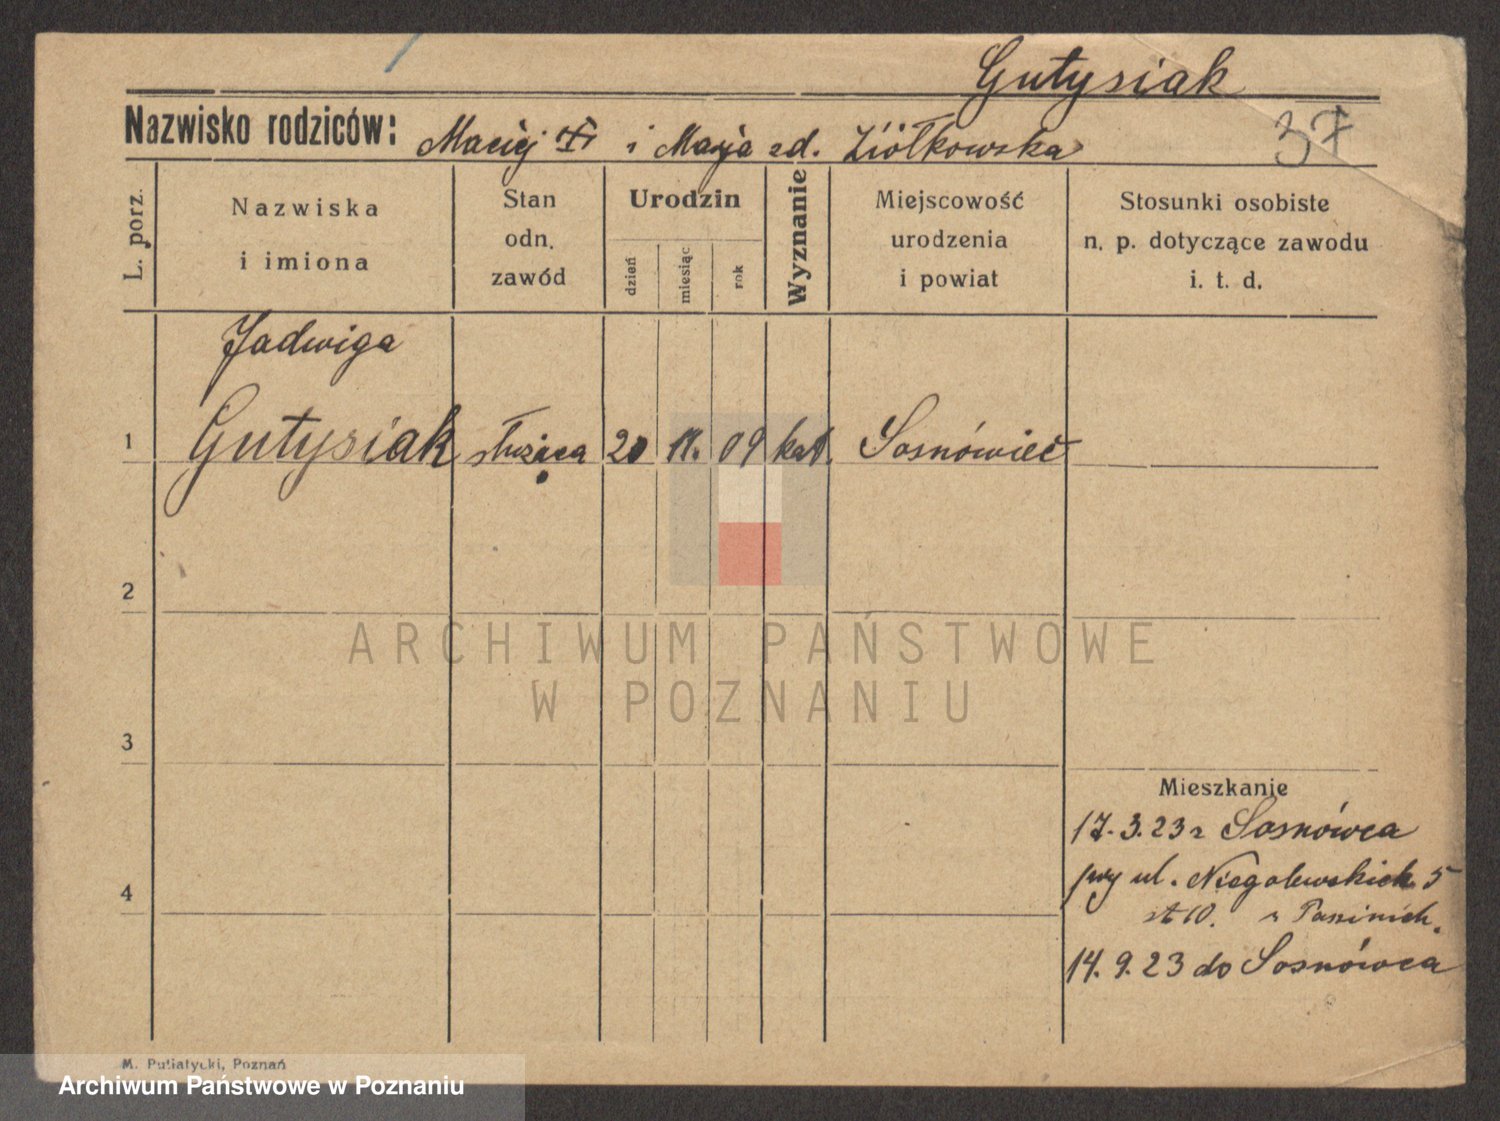 Gutysiak
Nazwisko rodziców: Maciej i Marja zd. Ziółkowska
37
L. porz.
Nazwiska
i imiona
Stan
odn.
zawód
Urodzin
dzień
miesiąc
rok
Wyznanie
Miejscowość
urodzenia
i powiat
Stosunki osobiste
n. p. dotyczące zawodu
i. t. d.
Jadwiga
1 Gutysiak służąca 20 11. 09 kat. Sosnówiec
2
ARCHIWUM PAŃSTWOWE
W POZNANIU
3
Mieszkanie
17.3.23 z Sosnówca
przy ul. Niegolewskich 5
4
14.9.23 do Sosnówca
M. Putiatycki, Poznań
Archiwum Państwowe w Poznaniu